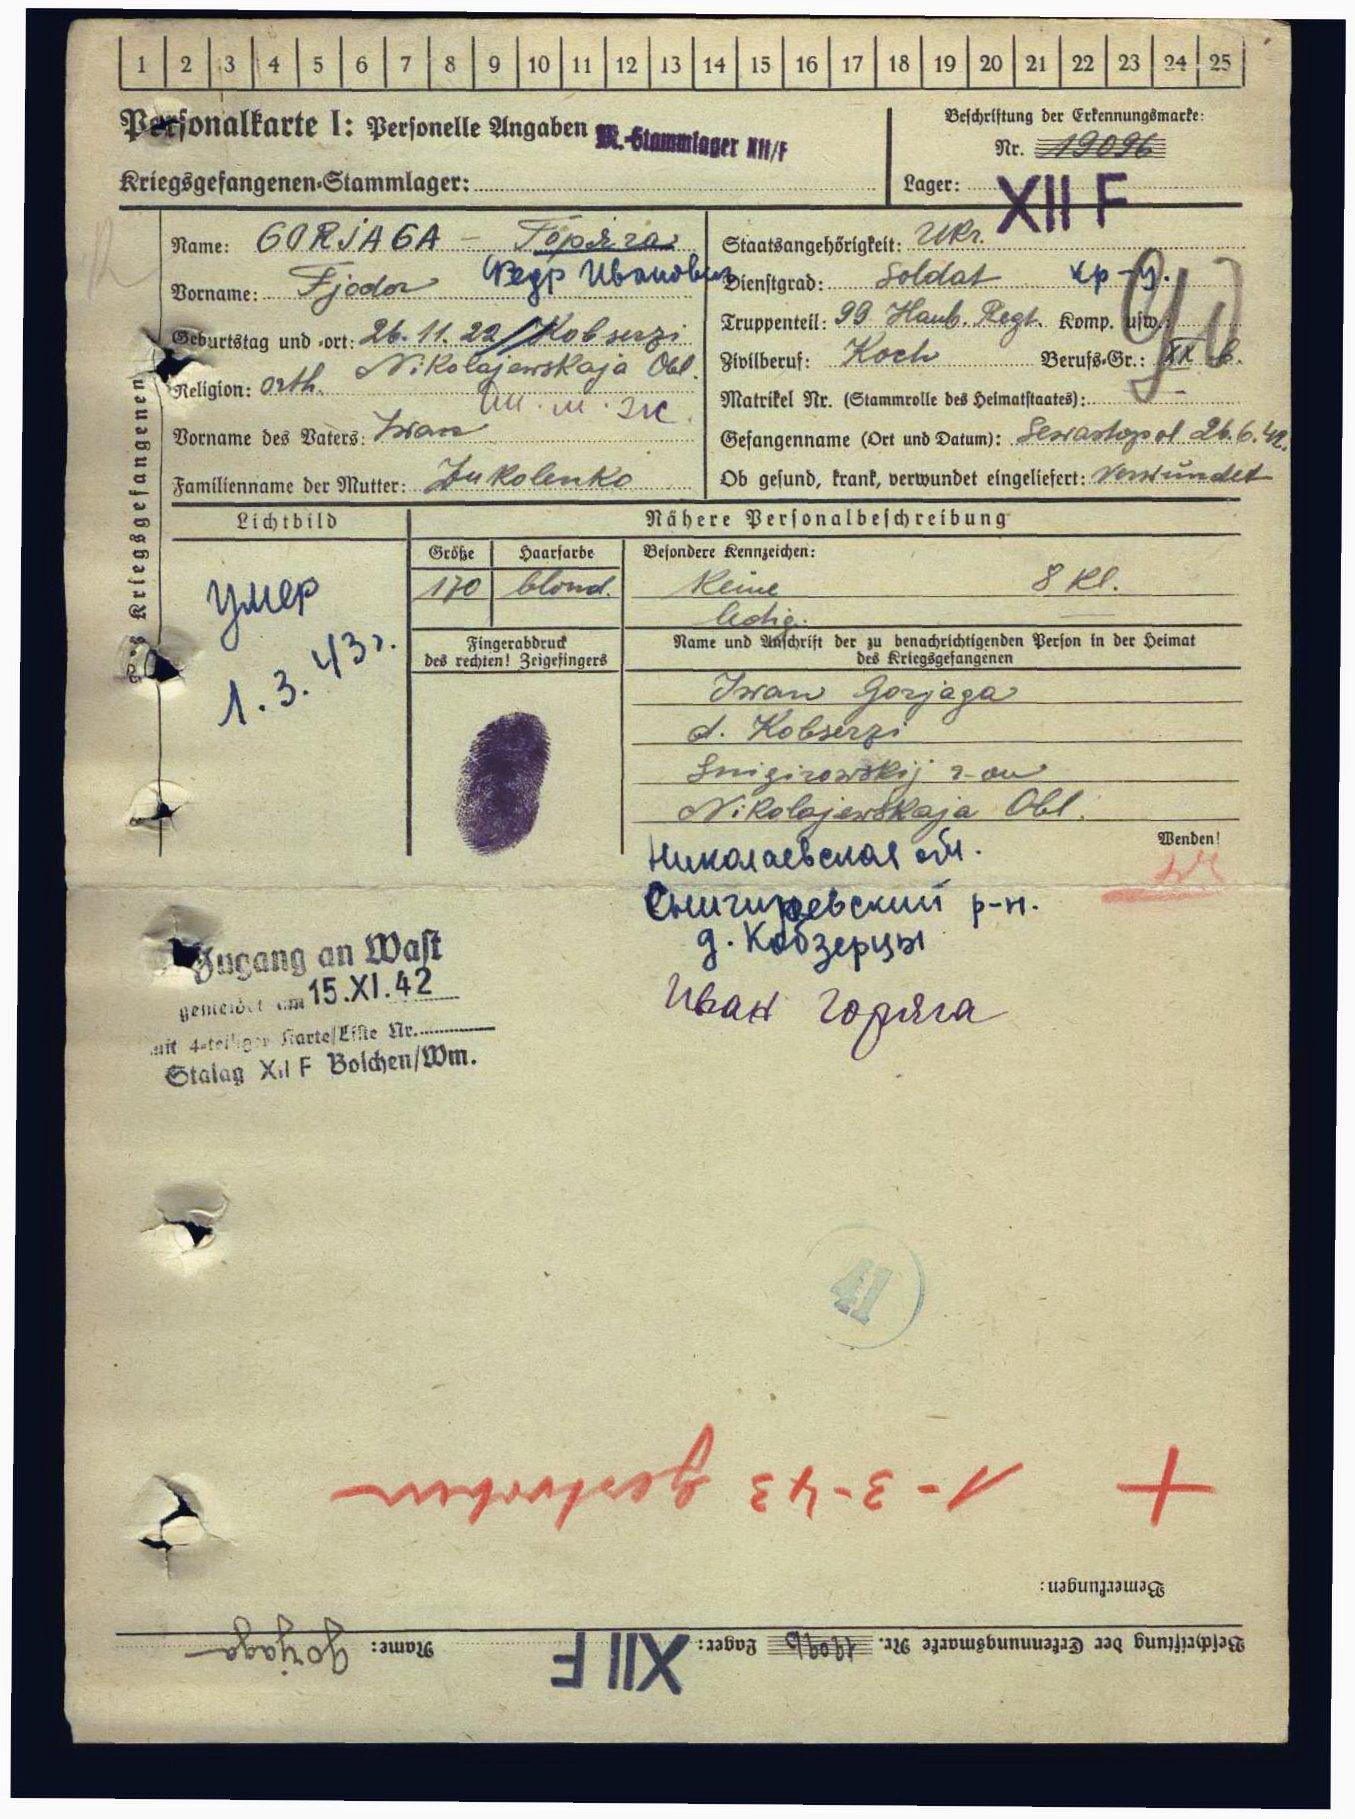 1 2 3 4 5 6 7 8 9 10 11 12 13 14 15 16 17 18 19 20 21 22 23 24 25
Personalkarte I: Personelle Angaben M.-Stammlager XII/F
Kriegsgefangenen-Stammlager:
Beschriftung der Erkennungsmarke:
Nr. 19096
Lager: XII F
des Kriegsgefangenen
Name: GORJAGA – Горяга
Vorname: Fjodor Федр Иванович
Geburtstag und -ort: 26.11.22 / Kobserzi
Nikolajewskaja Obl.
Religion: orth.
Vorname des Vaters: Iwan
Familienname der Mutter: Dukolenko
Staatsangehörigkeit: Ukr.
Dienstgrad: Soldat кр-ц.
Truppenteil: 99 Haub. Regt. Komp. usw.:
Zivilberuf: Koch Berufs-Gr.: XX b.
Matrikel Nr. (Stammrolle des Heimatstaates): –
Gefangenname (Ort und Datum): Sewastopol 26.6.42.
Ob gesund, krank, verwundet eingeliefert: verwundet
Lichtbild
умер
1.3.43г.
Nähere Personalbeschreibung
Größe Haarfarbe Besondere Kennzeichen:
170 blond. Keine 8 Kl.
ledig.
Fingerabdruck
des rechten! Zeigefingers
Name und Anschrift der zu benachrichtigenden Person in der Heimat
des Kriegsgefangenen
Iwan Gorjaga
d. Kobserzi
Snigirowskij r-on
Nikolajewskaja Obl.
Wenden!
Николаевская обл.
Снигиревский р-н.
д. Кобзерцы
Иван Горяга
Zugang an Wast
gemeldet am 15.XI.42
mit 4-teiliger Karte/Liste Nr.
Stalag XII F Bolchen/Wm.
41
+ 1-3-43 gestorben
Bemerkungen:
Beschriftung der Erkennungsmarke Nr. 19096 Lager: XII F Name: Gorjaga